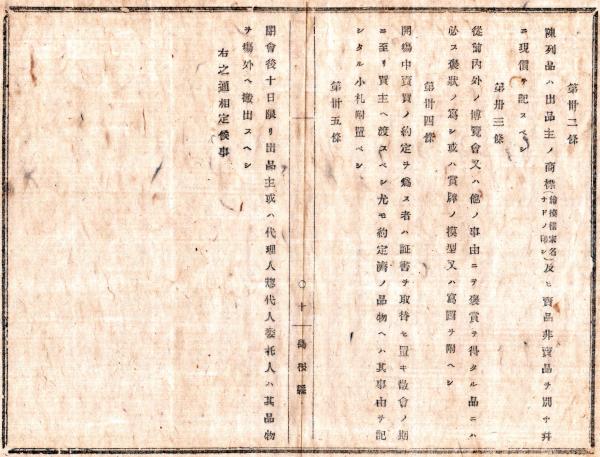 第卅二條
陳列品ハ出品主ノ商標(鑄檢檣家名ナドノ印シ)及ヒ賣品非賣品ヲ別ケ幷
ニ現價ヲ記スベシ
第卅三條
從前内外ノ博覽會又ハ他ノ事由ニヲ褒賞ヲ得タル品ニハ
必ス褒狀ノ寫シ或ハ賞牌ノ模型又ハ寫圖ヲ附ヘシ
第卅四條
開塲中賣買ノ約定ヲ爲ス者ハ証書ヲ取替セ置キ散會ノ期
ニ至リ買主ヘ渡スベシ尤モ約定濟ノ品物ヘハ其事由ヲ記
シタル小札附置ベシ
第卅五條
〇十
島根縣
閉會後十日限リ出品主或ハ代理人惣代人委托人ハ其品物
ヲ塲外ヘ搬出スヘシ
右之通相定候事